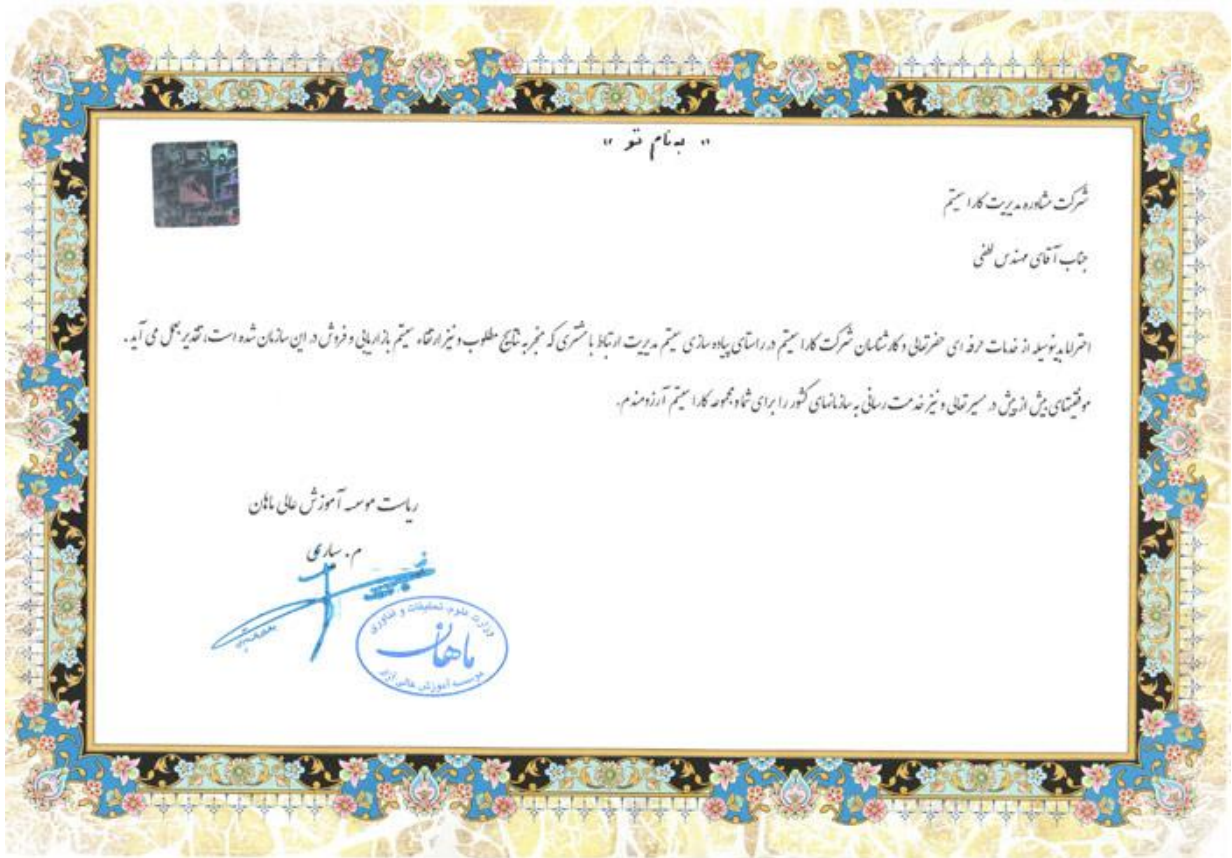 " بنام تو "
شرکت مشاوره مدیریت کارا سیستم
جناب آقای مهندس لطفی
احتراما بدینوسیله از خدمات حرفه ای حضرتعالی و کارشناسان شرکت کارا سیستم در راستای پیاده سازی سیستم مدیریت ارتباط با مشتری که منجر به نتایج مطلوب و نیز ارتقاء سیستم بازاریابی و فروش در این سازمان شده است، تقدیر بعمل می آید.
موفقیتهای بیش از پیش در مسیر تعالی و نیز خدمت رسانی به سازمانهای کشور را برای شما و مجموعه کارا سیستم آرزومندم.
ریاست موسسه آموزش عالی ماهان
م. ساری
وزارت علوم، تحقیقات و فناوری
ماهان
موسسه آموزش عالی آزاد